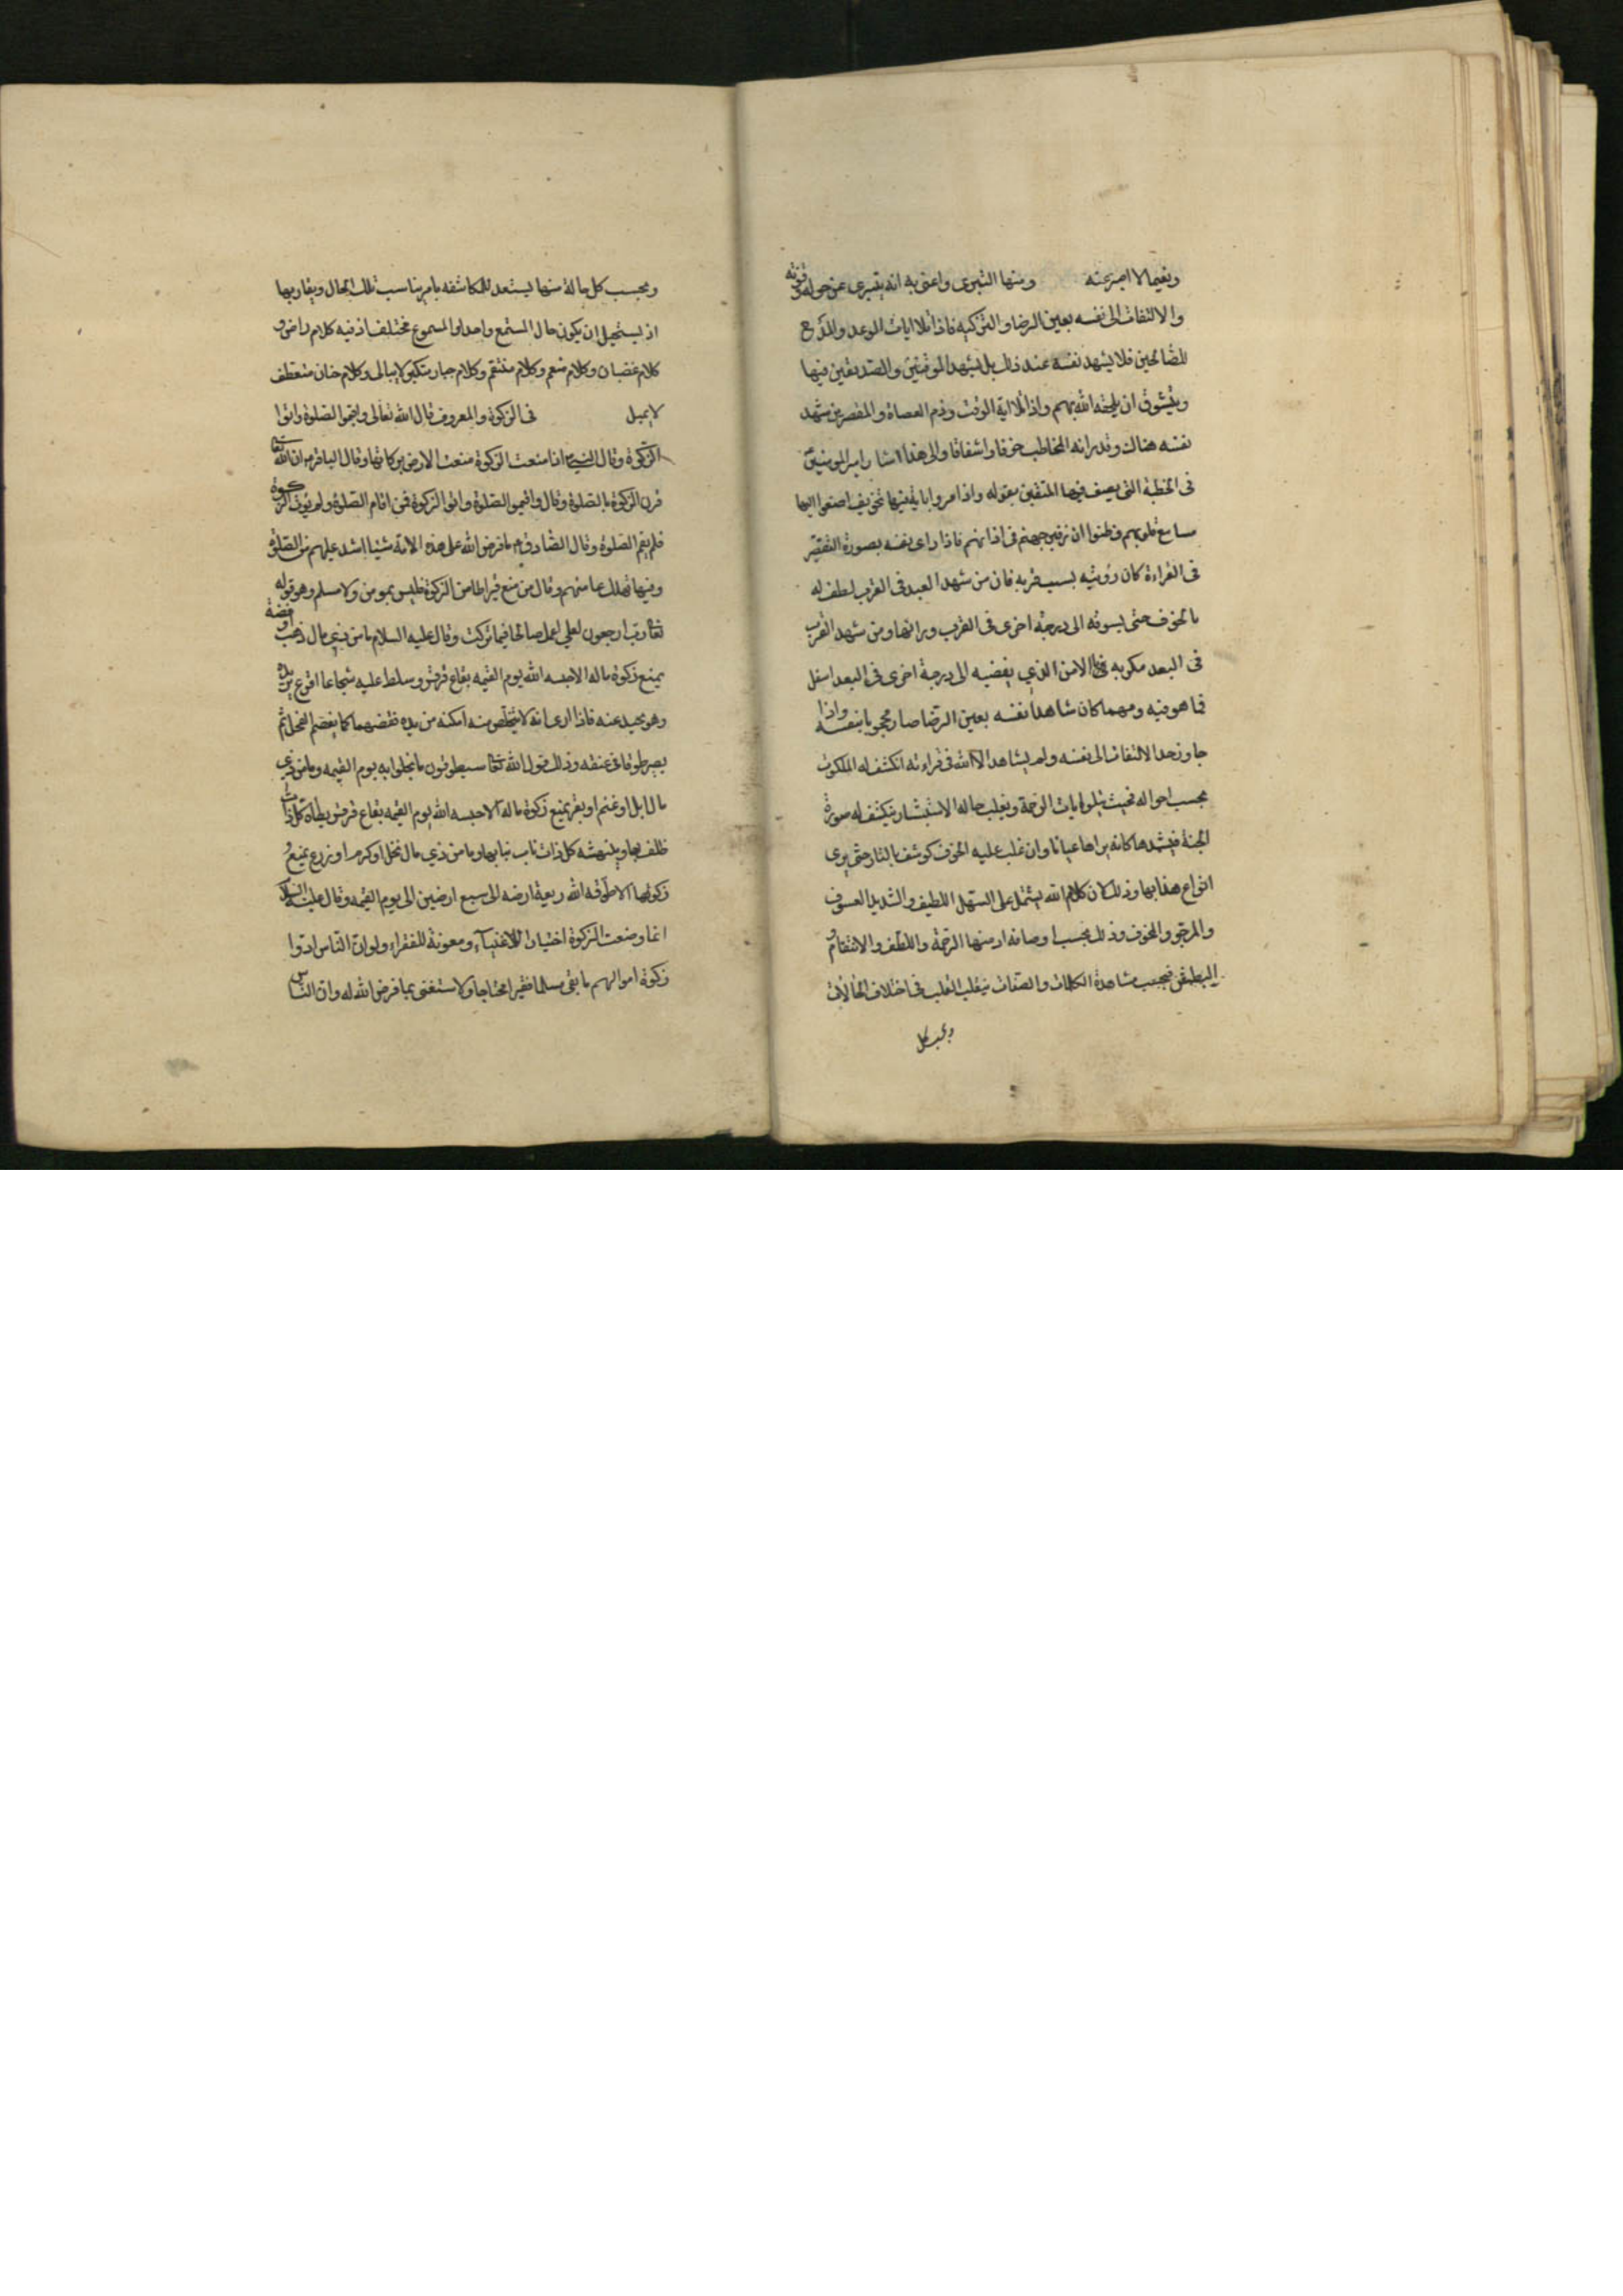 ونعيما لا اصبر عنه ومنها التبرى واعنى به انه يتبرى عن حوله وقوته
والالتفات الى نفسه بعين الرضا والتزكيه فاذا تلا ايات الوعد والمدح
للصالحين فلا يشهد نفسه عند ذلك بل يشهد الموقنين والصديقين فيها
ويتشوق ان يلحقه الله بهم واذا تلا اية الوقت وذم العصاة والمقصرين شهد
نفسه هناك وقدر انه المخاطب خوفا واشفاقا والى هذا اشار امير المومنين
فى الخطبة التى يصف فيها المتقين بقوله واذا مروا باية فيها تخويف اصغوا اليها
مسامع قلوبهم وظنوا ان زفير جهنم فى اذانهم فاذا راى نفسه بصورة التقصير
فى القراءة كان رؤيته بسبب قربه فان من شهد البعد فى القرب لطف له
بالخوف حتى يسوقه الى درجة اخرى فى القرب ورائها ومن شهد القرب
فى البعد مكر به الامن الذي يفضيه الى درجة اخرى فى البعد اسفل
مما هو فيه ومهما كان شاهدا نفسه بعين الرضا صار محجوبا بنفسه واذا
جاوز حد الالتفات الى نفسه ولم يشاهد الا الله فى قراءته انكشف له الملكوت
بحسب احواله فحيث يتلو ايات الرحمة ويغلب حاله الاستبشار ينكشف له صورة
الجنة فيشهدها كانه يراها عيانا وان غلب عليه الخوف كوشف بالنار حتى يرى
انواع عذابها وذلك لان كلام الله يشتمل على السهل اللطيف والشديد العسوف
والمرجو والمخوف وذلك بحسب اوصافه اذ منها الرحمة واللطف والانتقام و
البطش فبحسب مشاهدة الكلمات والصفات يتقلب القلب فى اختلاف الحالات
وبحسب كل
وبحسب كل حالة منها يستعد للمكاشفه بامر يناسب تلك الحال ويقاربها
اذ يستحيل ان يكون حال المستمع واحدا والمسموع مختلف اذ فيه كلام راض و
كلام غضبان وكلام منعم وكلام منتقم وكلام جبار متكبر لا يبالى وكلام حنان متعطف
لا يميل فى الزكوة والمعروف قال الله تعالى واقيموا الصلوة واتوا
الزكوة وقال النبي اذا منعت الزكوة منعت الارض بركاتها وقال الباقر ان الله تعا
قرن الزكوة بالصلوة وقال واقيموا الصلوة واتوا الزكوة فمن اقام الصلوة ولم يؤت الزكوة
فلم يقم الصلوة وقال الصادق ما فرض الله على هذه الامة شيئا اشد عليهم من الصلوة
وفيها تهلك عامتهم وقال من منع قيراطا من الزكوة فليس بمومن ولا مسلم وهو قوله
تعا رب ارجعون لعلي اعمل صالحا فيما تركت وقال عليه السلام ما من ذي مال ذهب او فضة
يمنع زكوة ماله الا حبسه الله يوم القيمه بقاع قرقر وسلط عليه شجاعا اقرع يريده
وهو يحيد عنه فاذا راى انه لا يتخلص منه امكنه من يده فقضمهما كما يقضم الفجل ثم
يصير طوقا فى عنقه وذلك قول الله تعا سيطوقون ما بخلوا به يوم القيمه وما من ذي
مال ابل او غنم او بقر يمنع زكوة ماله الا حبسه الله يوم القيمه بقاع قرقر يطأه كل ذات
ظلف بظلفها وينهشه كل ذات ناب بنابها وما من ذي مال نخل او كرم او زرع يمنع
زكوتها الا طوقه الله ريعة ارضه الى سبع ارضين الى يوم القيمه وقال عليه السلام
انما وضعت الزكوة اختبارا للاغنياء ومعونة للفقراء ولو ان الناس ادوا
زكوة اموالهم ما بقى مسلما فقيرا محتاجا ولاستغنى بما فرض الله له وان الناس